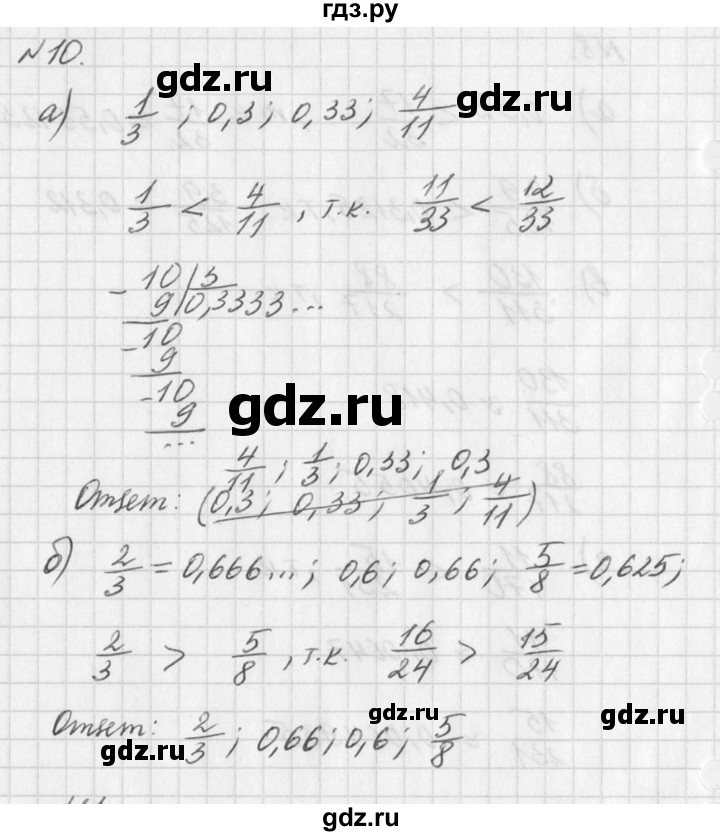 гдз.ру
N10.
gdz.ru
а) 1/3; 0,3; 0,33; 4/11
gdz.ru
1/3 < 4/11, т.к. 11/33 < 12/33
- 10 | 3
9 0,3333...
- 10
9
- 10
9
...
gdz.ru
4/11; 1/3; 0,33; 0,3
Ответ: (0,3; 0,33; 1/3; 4/11)
gdz.ru
б) 2/3 = 0,666...; 0,6; 0,66; 5/8 = 0,625;
2/3 > 5/8, т.к. 16/24 > 15/24
gdz.ru
gdz.ru
Ответ: 2/3; 0,66; 0,6; 5/8
gdz.ru
gdz.ru
gdz.ru